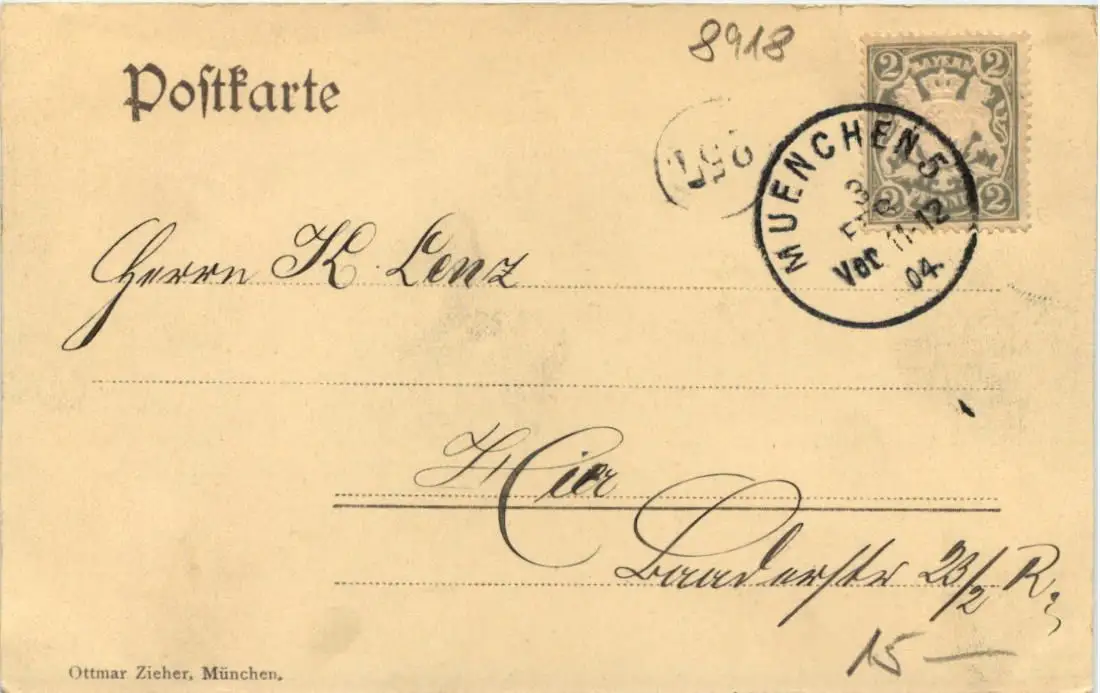 8918
Postkarte
2 BAYERN 2
2 2
MUENCHEN 5
3
FEB
Vor 11-12
04.
Herrn K. Lenz
Hier
Baaderstr 23/2 R.
15 —
Ottmar Zieher, München.